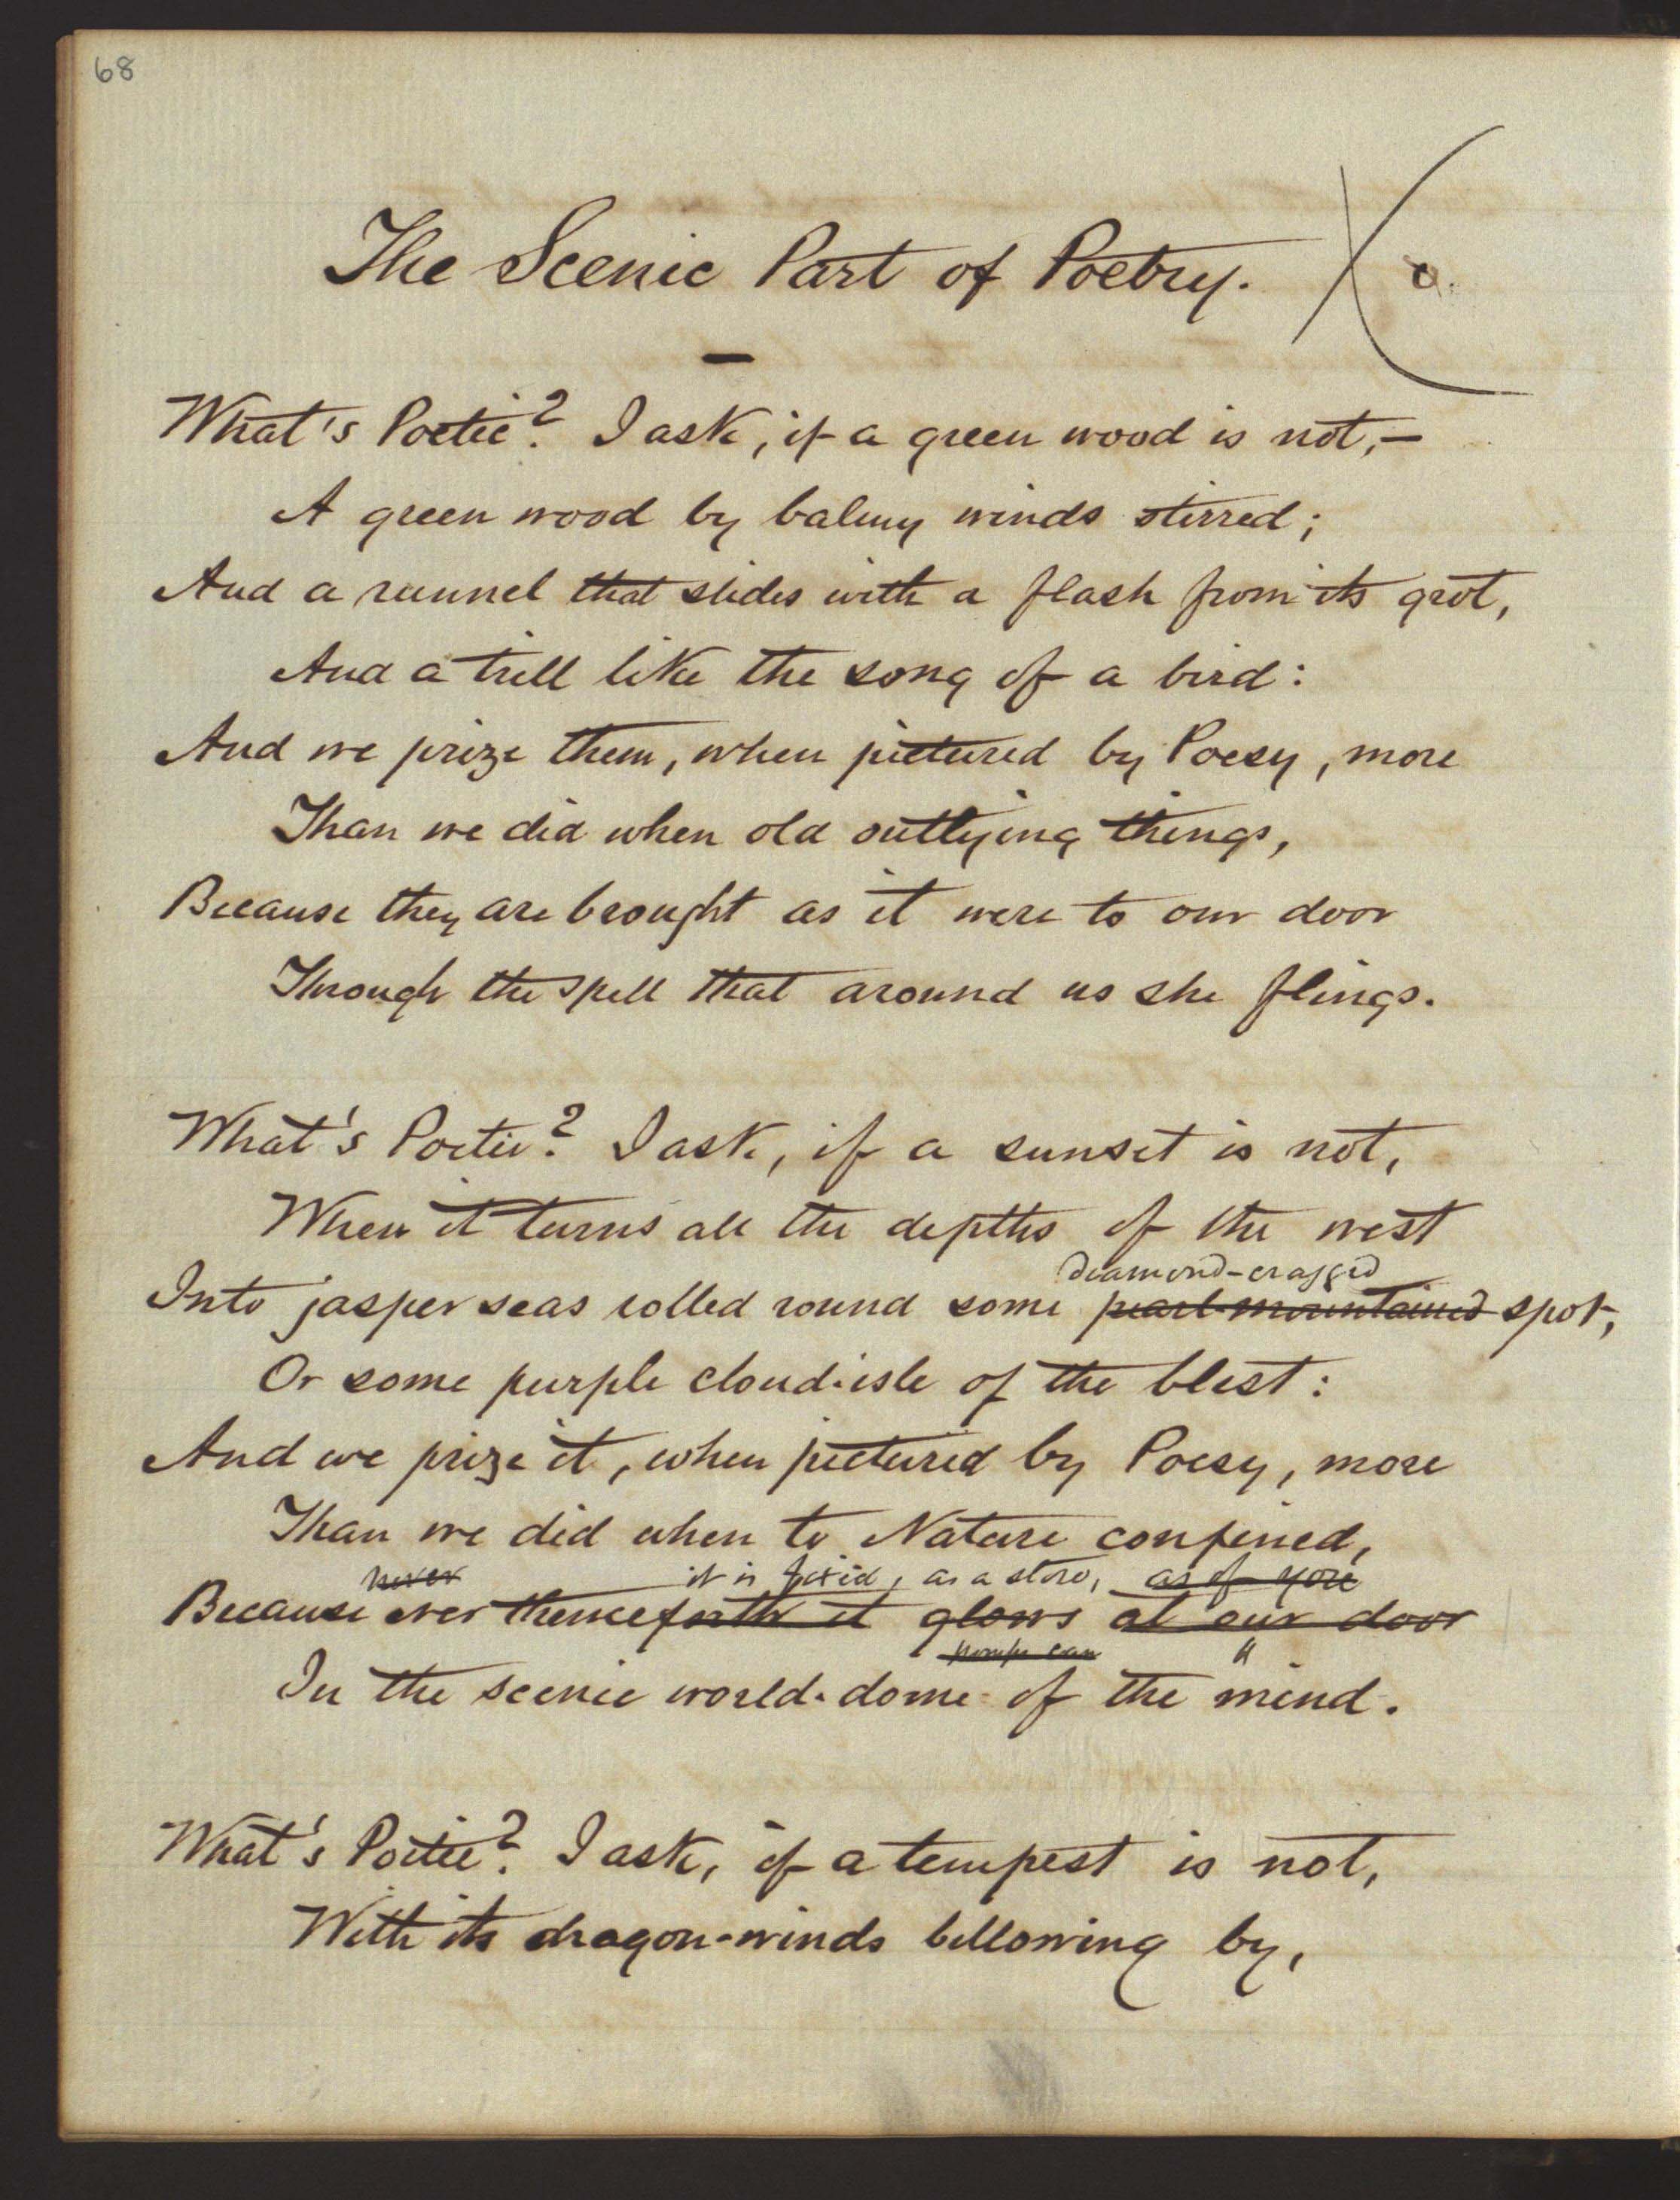 68
The Scenic Part of Poetry.
What's Poetic? I ask, if a green wood is not,—
A green wood by balmy winds stirred;
And a runnel that slides with a flash from its grot,
And a trill like the song of a bird:
And we prize them, when pictured by Poesy, more
Than we did when old outlying things,
Because they are brought as it were to our door
Through the spell that around us she flings.
What's Poetic? I ask, if a sunset is not,
When it turns all the depths of the west
diamond-cragged
Into jasper seas rolled round some pearl-mountained spot,
Or some purple cloud-isle of the blest:
And we prize it, when pictured by Poesy, more
Than we did when to Nature confined,
never it is fixed, as a store, as of yore
Because ever thenceforth it glows at our door
In the scenic world-dome of the mind.
What's Poetic? I ask, if a tempest is not,
With its dragon-winds bellowing by,